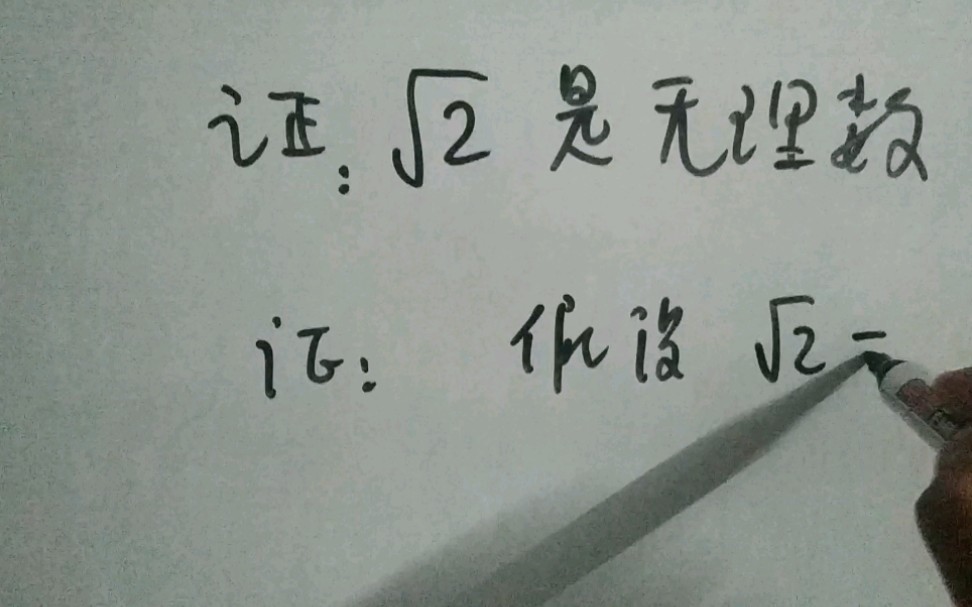 证:√2 是无理数
证: 假设 √2 -